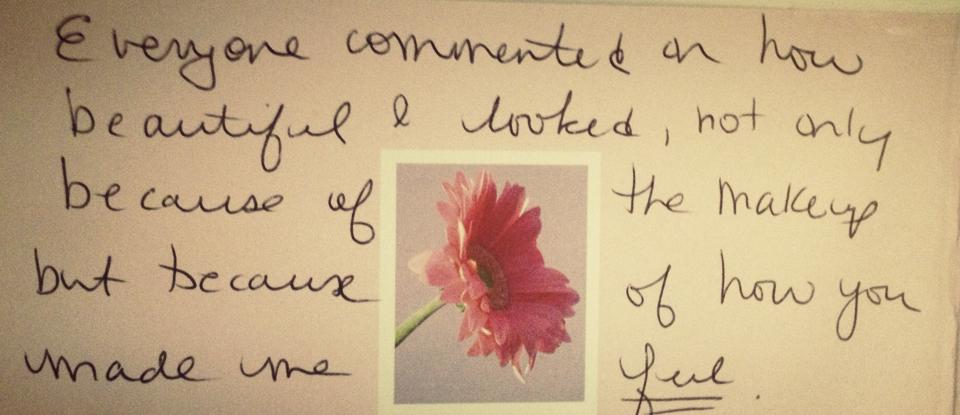 Everyone commented on how
beautiful I looked, not only
because of the makeup
but because of how you
made me feel.